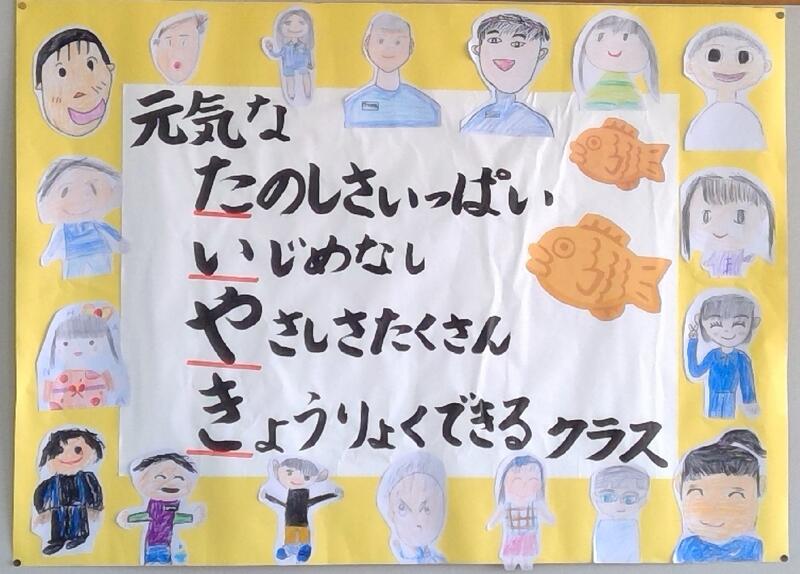 元気な
たのしさいっぱい
いじめなし
やさしさたくさん
きょうりょくできるクラス